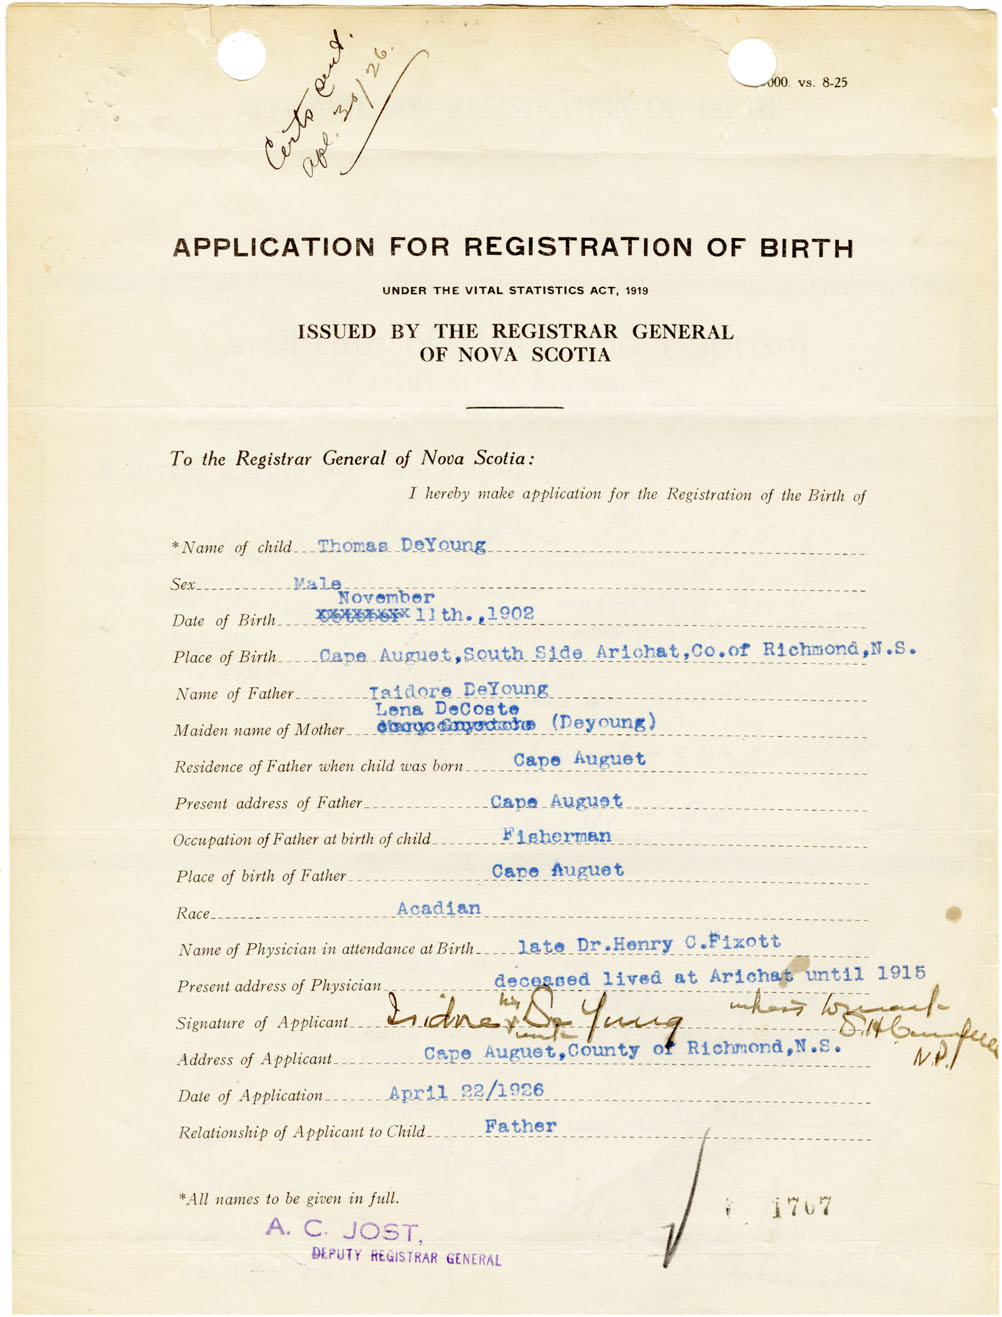 Certs sent.
Apl. 30/26.
000. vs. 8-25
APPLICATION FOR REGISTRATION OF BIRTH
UNDER THE VITAL STATISTICS ACT, 1919
ISSUED BY THE REGISTRAR GENERAL
OF NOVA SCOTIA
To the Registrar General of Nova Scotia:
I hereby make application for the Registration of the Birth of
*Name of child Thomas DeYoung
Sex Male
November
Date of Birth October 11th.,1902
Place of Birth Cape Auguet,South Side Arichat,Co.of Richmond,N.S.
Name of Father Isidore DeYoung
Lena DeCoste
Maiden name of Mother (Deyoung)
Residence of Father when child was born Cape Auguet
Present address of Father Cape Auguet
Occupation of Father at birth of child Fisherman
Place of birth of Father Cape Auguet
Race Acadian
Name of Physician in attendance at Birth late Dr.Henry C.Fixott
Present address of Physician deceased lived at Arichat until 1915
Signature of Applicant Isidore his X mark De Young witness to mark
N.P.
Address of Applicant Cape Auguet,County of Richmond,N.S.
Date of Application April 22/1926
Relationship of Applicant to Child Father
*All names to be given in full.
1707
A. C. JOST,
DEPUTY REGISTRAR GENERAL